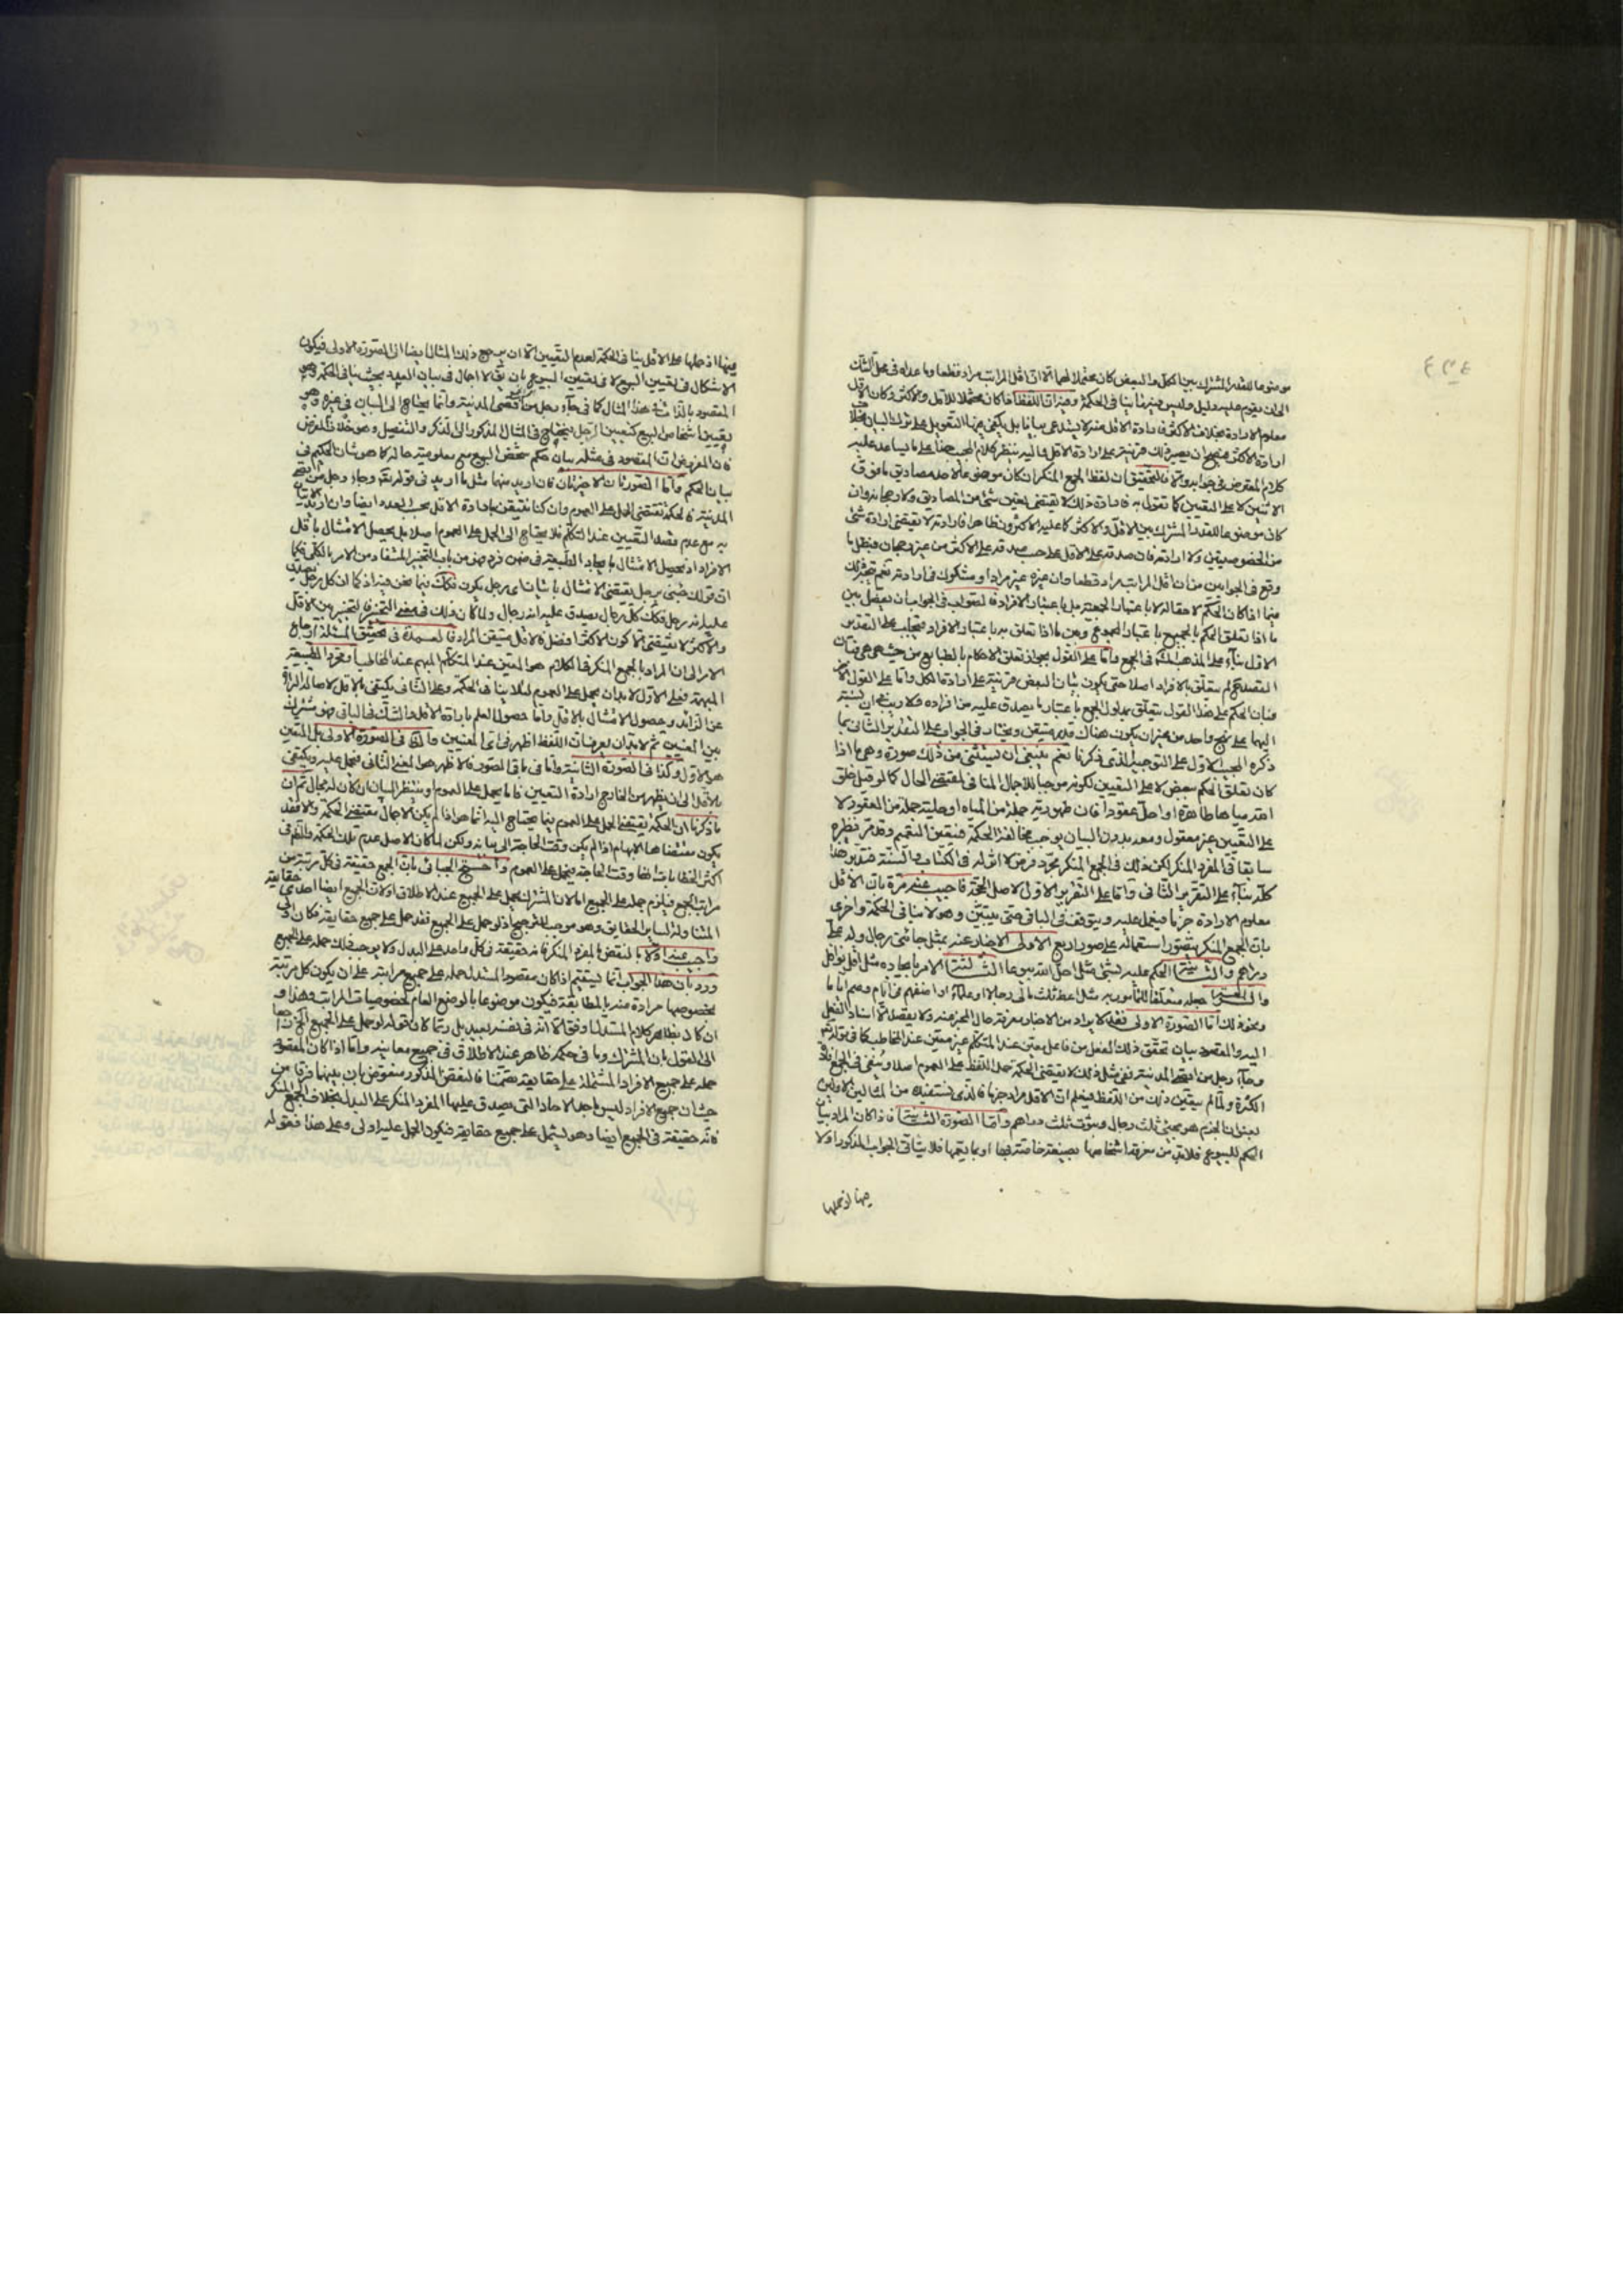 موضوعا للقدر المشترك بين الكل والبعض كان محتملا لهما الا ان اقل المراتب مراد قطعا وما عداه في محل الشك
الى ان يقوم عليه دليل وليس فيها ينافي الحكمة وفيه ان اللفظ اذا كان محتملا للاقل والاكثر وكان الاقل
معلوم الارادة بخلاف الاكثر فارادة الاقل منه لا يستدعى بيانا بل يكفي فيها التعويل على ترك البيان بخلاف
ارادة الاكثر
كلام المعترض في جوابه والتحقيق ان لفظ الجمع المنكر ان كان موضوعا لاحد مصاديق ما فوق
الاثنين لا على التعيين كما نقول به فارادة ذلك لا يقتضى تعيين شئ من المصاديق ولا رجحانه وان
كان موضوعا للقدر المشترك بين الاقل والاكثر كما عليه الاكثرون فظاهر ان ارادته لا يقتضى ارادة شئ
من الخصوصيتين ولا ارادته فان صدقه على الاقل على حسب صدقه على الاكثر من غير رجحان فبطل ما
وقع في الجوابين من ان اقل المراتب مراد قطعا وان غيره غير مراد او مشكوك في ارادته نعم
فيما اذا كان الحكم لاحقا له لا باعتبار الجمعية بل باعتبار الافراد فالصواب في الجواب ان يفصل بين
ما اذا تعلق الحكم بالجميع باعتبار المجموع وبين ما اذا تعلق به باعتبار الافراد فيجاب على التقدير
الاول بناء على المذهب المختار في الجمع واما على القول بجواز تعلق الاحكام بالطبايع من حيث هي هي فبان
القصد لم يتعلق بالافراد اصلا حتى يكون بيان البعض قرينة على ارادة الكل واما على القول الاخر
فبان الحكم على هذا القول يتعلق بمدلول الجمع باعتبار ما يصدق عليه من افراده فلا ريب ان نسبته
اليها على نهج واحد من غير ان يكون هناك قدر متيقن ويختار في الجواب على التقدير الثاني بما
ذكره المجيب الاول على التوجيه الذي ذكرنا نعم ينبغي ان يستثنى من ذلك صورة وهي ما اذا
كان تعلق الحكم ببعض لا على التعيين لكونه موجبا للاجمال المنافي لمقتضى الحال كما لو قيل خلق
الله مياها طاهرة او احل عقودا فان طهورية جملة من المياه او حلية جملة من العقود لا
على التعيين غير معقول ومعه بدون البيان يوجب مخالفة الحكمة فيتعين التعميم وقد مر نظيره
سابقا في المفرد المنكر لكن ذلك في الجمع المنكر مجرد فرض لا اثر له في الكتاب والسنة فتدبر هذا
كله بناء على التقرير الثاني واما على التقرير الاول لاصل الحجة فاجيب عنه مرة بان الاقل
معلوم الارادة جزما فيعمل عليه ويتوقف في الباقي حتى يتبين وهو لا ينافي الحكمة واخرى
بان الجمع المنكر يتصور استعماله على صور اربع الاولى الاخبار عنه بمثل جائنى رجال وله على
دراهم والثانية الحكم عليه بشئ مثل احل الله بيوعا الثالثة الامر بايجاده مثل اقل نوافل
والرابعة جعله متعلقا للمأمور به مثل اعط ثلث مالى رجالا او علماء او اضفهم في ايام وصم اياما
ونحو ذلك اما الصورة الاولى فقد لا يراد من الاخبار معرفة حال المخبر عنه ولا يقصد الا اسناد الفعل
اليه والمقصود بيان تحقق ذلك الفعل من فاعل معين عند المتكلم غير معين عند المخاطب كما في قوله تعالى
وجاء رجل من اقصى المدينة ففي مثل ذلك لا يقتضى الحكمة حمل اللفظ على العموم اصلا وينبغي في الجمع
الكثرة ولما لم يتعين ذلك من اللفظ فيعلم ان الاقل مراد جزما فالذي نستفيده من المثالين الاولين
بعنوان الجزم هو مجئ ثلث رجال وثبوت ثلث دراهم واما الصورة الثانية فاذا كان المراد بيان
الحكم للبيوع فلا بد من معرفة اشخاصها بصيغة خاصة فيها او بما يعمها فلا يتأتى الجواب المذكور اولا
فيها اذ حملها
فيها اذ حملها على الاقل ينافي الحكمة لعدم التعيين الا ان يرجع ذلك المثال ايضا الى الصورة الاولى فيكون
الاشكال في تعيين البيع لا في تعيين البيوع بان يقال الاجمال في بيان العدد بحيث ينافي الحكمة وهو
المقصود بالذات في هذا المثال كما في جاء رجل من اقصى المدينة وانما يحتاج الى البيان في غيره وهو
تعيين اشخاص البيع كتعيين الرجل فيحتاج في المثال المذكور الى الذكر والتفصيل وهو خلاف المفروض
فان المفروض ان المقصود في مثله بيان حكم شخص البيع مع معلومية حاله كما هو شان الحكيم في
بيان الحكم واما الصورتان الاخيرتان فان اريد منهما مثل ما اريد في قوله تعالى وجاء رجل من اقصى
المدينة فالحكمة تقتضى الحمل على العموم وان كنا نتيقن بارادة الاقل بحسب العدد ايضا وان اريد الاتيان
به مع عدم قصد التعيين عند المتكلم فلا يحتاج الى الحمل على العموم اصلا بل يحصل الامتثال باقل
الافراد اذ تحصيل الامتثال بايجاد الطبيعة في ضمن فرد هو من باب التخيير المستفاد من الامر بالكلى فكما
ان قولك جئنى برجل يقتضى الامتثال باتيان اى رجل يكون فكذلك فيما نحن فيه اذ كما ان كل رجل يصدق
عليه انه رجل فكذلك كل رجال يصدق عليه انه رجال ولما كان ذلك في معنى التخيير فالتخيير بين الاقل
والاكثر لا يقتضى الا كون الاكثر افضل فالاقل متيقن المراد فالعمدة في تحقيق المسئلة ارجاع
الامر الى ان المراد بالجمع المنكر في الكلام هو المعين عند المتكلم المبهم عند المخاطب او مجرد الطبيعة
المبهمة فعلى الاول لا بد ان يحمل على العموم لئلا ينافي الحكمة وعلى الثاني يكتفى بالاقل لاصالة البراءة
عن الزائد وحصول الامتثال بالاقل واما حصول العلم بارادة الاقل والشك في الباقي فهو مشترك
بين المعنيين ثم لا بد ان يعرف ان اللفظ اظهر في اى المعنيين والظاهر في الصورة الاولى بل المتعين
هو الاول وكذا في الصورة الثانية واما في باقى الصور فالاظهر هو المعنى الثاني فيحمل عليه ويكتفى
بالاقل الى ان يظهر من الخارج ارادة التعيين فاما يحمل على العموم او ينتظر البيان ان كان له مجال ثم ان
ما ذكرنا ان الحكمة يقتضى الحمل على العموم فيما يحتاج اليه انما هو اذا لم يكن الاجمال مقتضى الحكمة والا فقد
يكون مقتضاها الابهام اذا لم يكن وقت الحاجة الى بيانه ولكن لما كان الاصل عدم تلك الحكمة والظاهر في
اكثر الخطابات انها وقت الحاجة فيحمل على العموم واحتج الجبائى بان الجمع حقيقة في كل مرتبة من
مراتب الجمع فيلزم حمله على الجميع اما لان المشترك يحمل على الجميع عند الاطلاق او لان الجمع ايضا احدى حقايقه
المتناولة لساير الحقايق وهو موجب للترجيح اذ لو حمل على الجميع فقد حمل على جميع حقايقه فكان اولى
واجيب عنه اولا بالنقض بالمفرد المنكر فانه حقيقة في كل واحد على البدل ولا يوجب ذلك حمله على الجميع
ورد بان هذا الجواب انما يستقيم اذا كان مقصود المستدل حمله على جميع مراتبه على ان يكون كل مرتبة
بخصوصها مرادة منه بالمطابقة فيكون موضوعا بالوضع العام لخصوصيات المراتب وهذا و
ان كان بظاهر كلام المستدل اوفق الا انه في نفسه بعيد بل ربما لان قوله لو حمل على الجميع الخ راجعا
الى القول بان المشترك وما في حكمه ظاهر عند الاطلاق في جميع معانيه واما اذا كان المقصود
حمله على جميع الافراد المشتملة على حقايقه تضمنا فالنقض المذكور منقوض بان بينهما فرقا من
حيث ان جميع الافراد ليس باحد الاحاد التى يصدق عليها المفرد المنكر على البدل بخلاف الجمع المنكر
فانه حقيقة في الجميع ايضا وهو يشمل على جميع حقايقه فيكون الحمل عليه اولى وعلى هذا فقوله